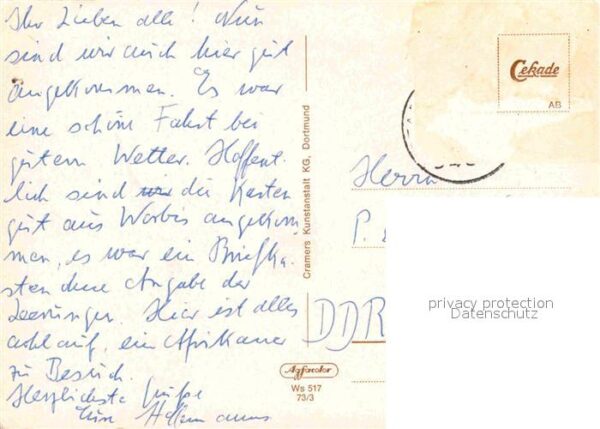 Ihr Lieben alle! Nun
sind wir auch hier gut
angekommen. Es war
eine schöne Fahrt bei
gutem Wetter. Hoffent-
lich sind wir die Karten
gut aus Worbis angekom,
men, es war ein Briefka,
sten ohne Angabe der
Leerungen. Hier ist alles
wohlauf, ein Afrikaner
zu Besuch.
Herzlichste Grüße
Eure
Cramers Kunstanstalt KG, Dortmund
Cekade
AB
Herrn
P.
DDR
Agfacolor
Ws 517
73/3
privacy protection
Datenschutz